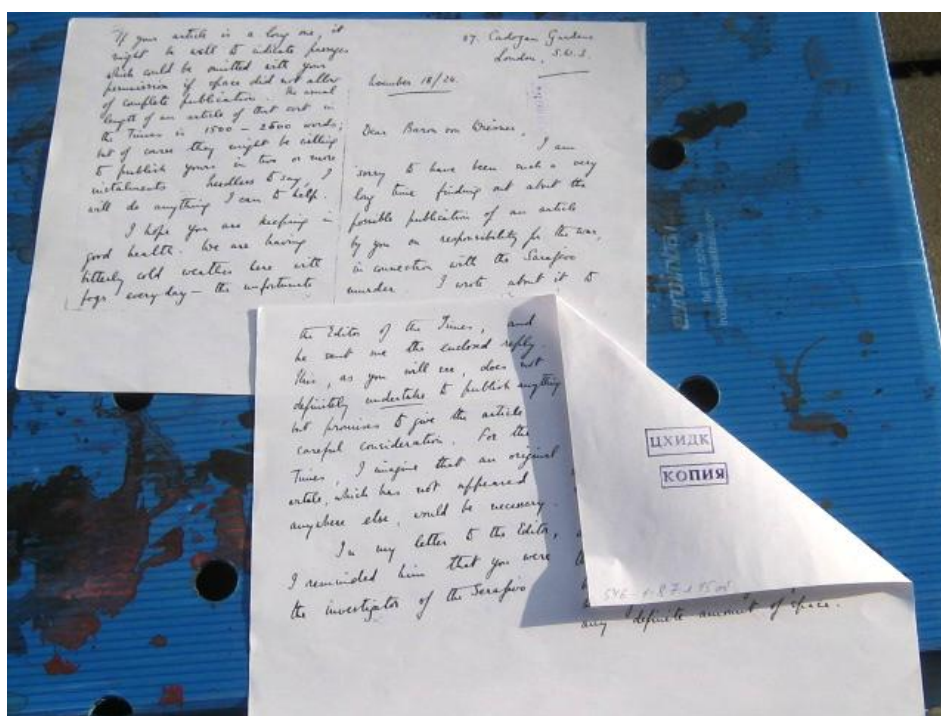 If your article is a long one, it
might be well to indicate passages
which could be omitted with your
permission if space did not allow
of complete publication. The usual
length of an article of that sort in
the Times is 1500 – 2500 words;
but of course they might be willing
to publish yours in two or more
instalments. Needless to say, I
will do anything I can to help.
I hope you are keeping in
good health. We are having
bitterly cold weather here with
fogs every day – the unfortunate
Cadogan Gardens
London, S.W.3.
November 18/24.
Dear Baron von Wiesner,
I am
sorry to have been such a very
long time finding out about the
possible publication of an article
by you on responsibility for the war,
in connection with the Sarajevo
murder. I wrote about it to
the Editor of the Times, and
he sent me the enclosed reply.
This, as you will see, does not
definitely undertake to publish anything
but promises to give the article
careful consideration. For the
Times, I imagine that an original
article, which has not appeared
anywhere else, would be necessary.
In my letter to the Editor,
I reminded him that you were
the investigator of the Sarajevo
any definite amount of space.
ЦХИДК
КОПИЯ